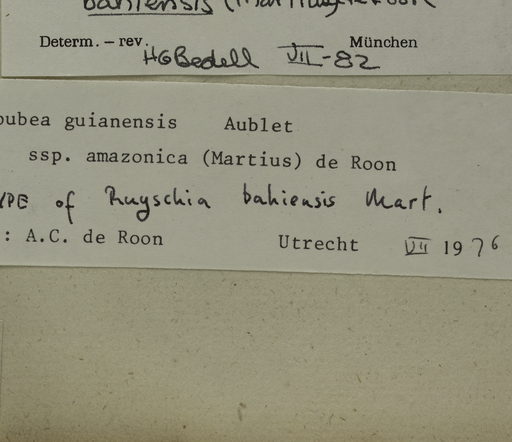 bahiensis
Determ. – rev. HGBedell VII-82 München
oubea guianensis Aublet
ssp. amazonica (Martius) de Roon
YPE of Ruyschia bahiensis Mart.
: A.C. de Roon Utrecht VII 1976